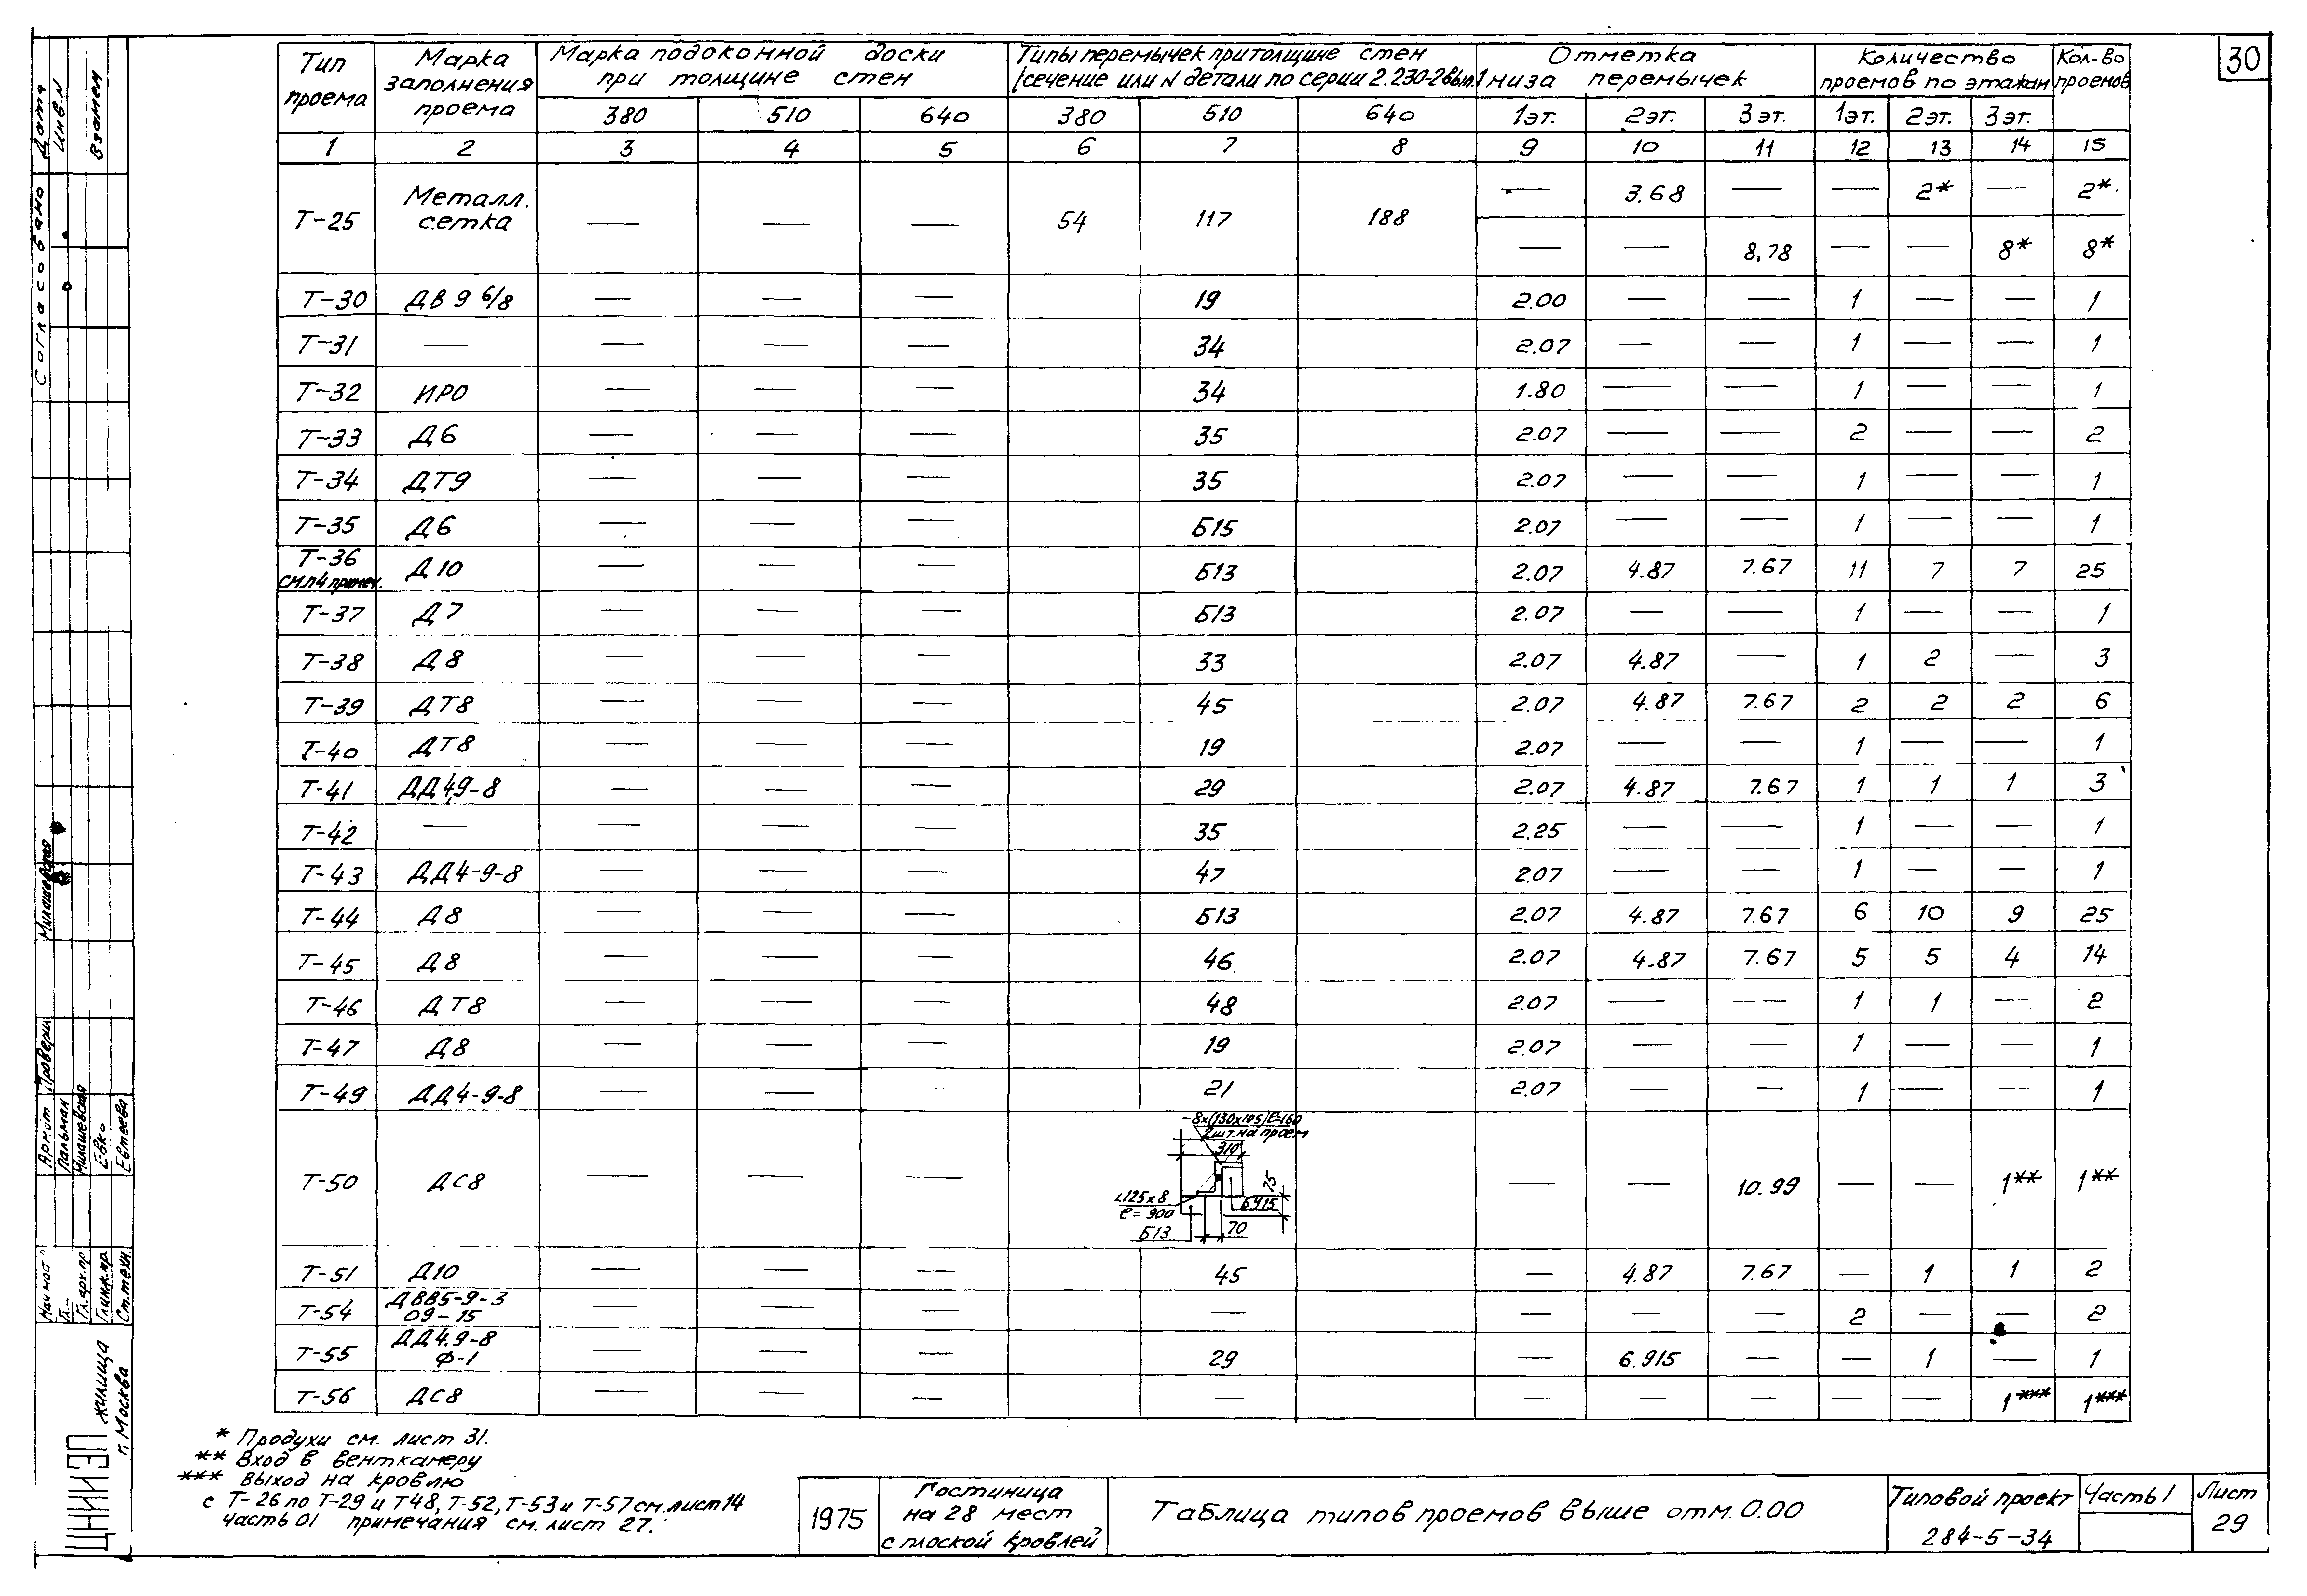 30
Тип проема | Марка заполнения проема | Марка подоконной доски при толщине стен | Типы перемычек при толщине стен /сечение или N детали по серии 2.230-2 вып.1 | Отметка низа перемычек | Количество проемов по этажам | Кол-во проемов
380 | 510 | 640 | 380 | 510 | 640 | 1эт. | 2эт. | 3эт. | 1эт. | 2эт. | 3эт.
1 | 2 | 3 | 4 | 5 | 6 | 7 | 8 | 9 | 10 | 11 | 12 | 13 | 14 | 15
Т-25 | Металл. сетка | — | — | — | 54 | 117 | 188 | — | 3.68 | — | — | 2* | — | 2*
— | — | 8,78 | — | — | 8* | 8*
Т-30 | ДВ 9 6/8 | — | — | — | 19 | 2.00 | — | — | 1 | — | — | 1
Т-31 | — | — | — | — | 34 | 2.07 | — | — | 1 | — | — | 1
Т-32 | ИРО | — | — | — | 34 | 1.80 | — | — | 1 | — | — | 1
Т-33 | Д6 | — | — | — | 35 | 2.07 | — | — | 2 | — | — | 2
Т-34 | ДТ9 | — | — | — | 35 | 2.07 | — | — | 1 | — | — | 1
Т-35 | Д6 | — | — | — | Б15 | 2.07 | — | — | 1 | — | — | 1
Т-36 см.п4 примеч. | Д10 | — | — | — | Б13 | 2.07 | 4.87 | 7.67 | 11 | 7 | 7 | 25
Т-37 | Д7 | — | — | — | Б13 | 2.07 | — | — | 1 | — | — | 1
Т-38 | Д8 | — | — | — | 33 | 2.07 | 4.87 | — | 1 | 2 | — | 3
Т-39 | ДТ8 | — | — | — | 45 | 2.07 | 4.87 | 7.67 | 2 | 2 | 2 | 6
Т-40 | ДТ8 | — | — | — | 19 | 2.07 | — | — | 1 | — | — | 1
Т-41 | ДД4,9-8 | — | — | — | 29 | 2.07 | 4.87 | 7.67 | 1 | 1 | 1 | 3
Т-42 | — | — | — | — | 35 | 2.25 | — | — | 1 | — | — | 1
Т-43 | ДД4-9-8 | — | — | — | 47 | 2.07 | — | — | 1 | — | — | 1
Т-44 | Д8 | — | — | — | Б13 | 2.07 | 4.87 | 7.67 | 6 | 10 | 9 | 25
Т-45 | Д8 | — | — | — | 46 | 2.07 | 4.87 | 7.67 | 5 | 5 | 4 | 14
Т-46 | ДТ8 | — | — | — | 48 | 2.07 | — | — | 1 | 1 | — | 2
Т-47 | Д8 | — | — | — | 19 | 2.07 | — | — | 1 | — | — | 1
Т-49 | ДД4-9-8 | — | — | — | 21 | 2.07 | — | — | 1 | — | — | 1
Т-50 | ДС8 | — | — | — | — | — | 10.99 | — | — | 1** | 1**
-8×(130×105) ℓ=160
2шт.на проем
310
75
L125×8
ℓ=900
Б13
70
Т-51 | Д10 | — | — | — | 45 | — | 4.87 | 7.67 | — | 1 | 1 | 2
Т-54 | ДВ85-9-3 09-15 | — | — | — | — | — | — | — | 2 | — | — | 2
Т-55 | ДД4.9-8 Ф-1 | — | — | — | 29 | — | 6.915 | — | — | 1 | — | 1
Т-56 | ДС8 | — | — | — | — | — | — | — | — | — | 1*** | 1***
* Продухи см. лист 31.
** Вход в венткамеру
*** Выход на кровлю
с Т-26 по Т-29 и Т48, Т-52, Т-53 и Т-57 см.лист 14
часть 01 примечания см. лист 27.
1975
Гостиница
на 28 мест
с плоской кровлей
Таблица типов проемов выше отм. 0.00
Типовой проект
284-5-34
Часть 1
Лист
29
Согласовано
Дата
Инв.N
Взамен
Милашевская
Проверил
Пальман
Милашевская
Евко
Евтеева
Гл.арх.пр
Гл.инж.пр.
Ст.техн.
ЦНИИЭП жилища
г. Москва